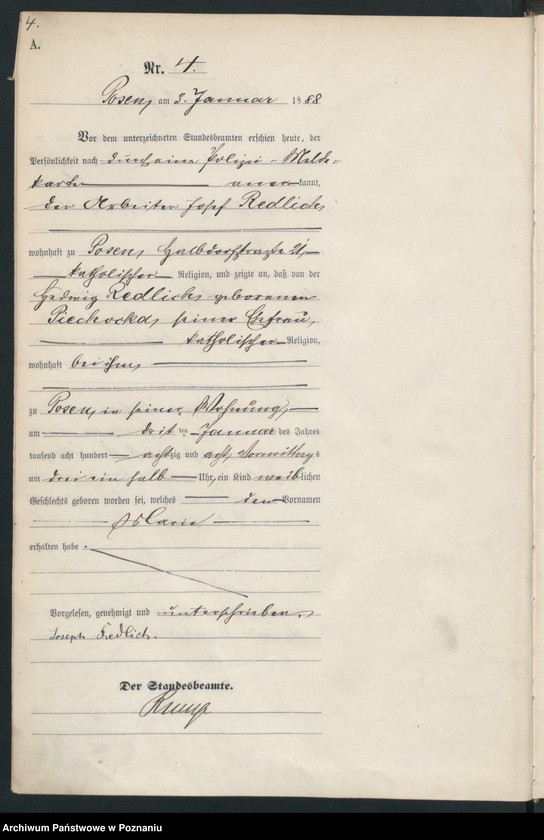 4.
A.
Nr. 4.
Posen, am 3. Januar 1888
Vor dem unterzeichneten Standesbeamten erschien heute, der
Persönlichkeit nach durch eine Polizei-Melde-
karte anerkannt,
der Arbeiter Josef Redlich,
wohnhaft zu Posen, Halbdorfstraße 21,
katholischer Religion, und zeigte an, daß von der
Hedwig Redlich geborenen
Piechocka, seiner Ehefrau,
katholischer Religion,
wohnhaft bei ihm,
zu Posen, in seiner Wohnung,
am dritten Januar des Jahres
tausend acht hundert achtzig und acht Vormittags
um drei ein halb Uhr, ein Kind weiblichen
Geschlechts geboren worden sei, welches den Vornamen
Marie
erhalten habe.
Vorgelesen, genehmigt und unterschrieben.
Joseph Redlich.
Der Standesbeamte.
Archiwum Państwowe w Poznaniu